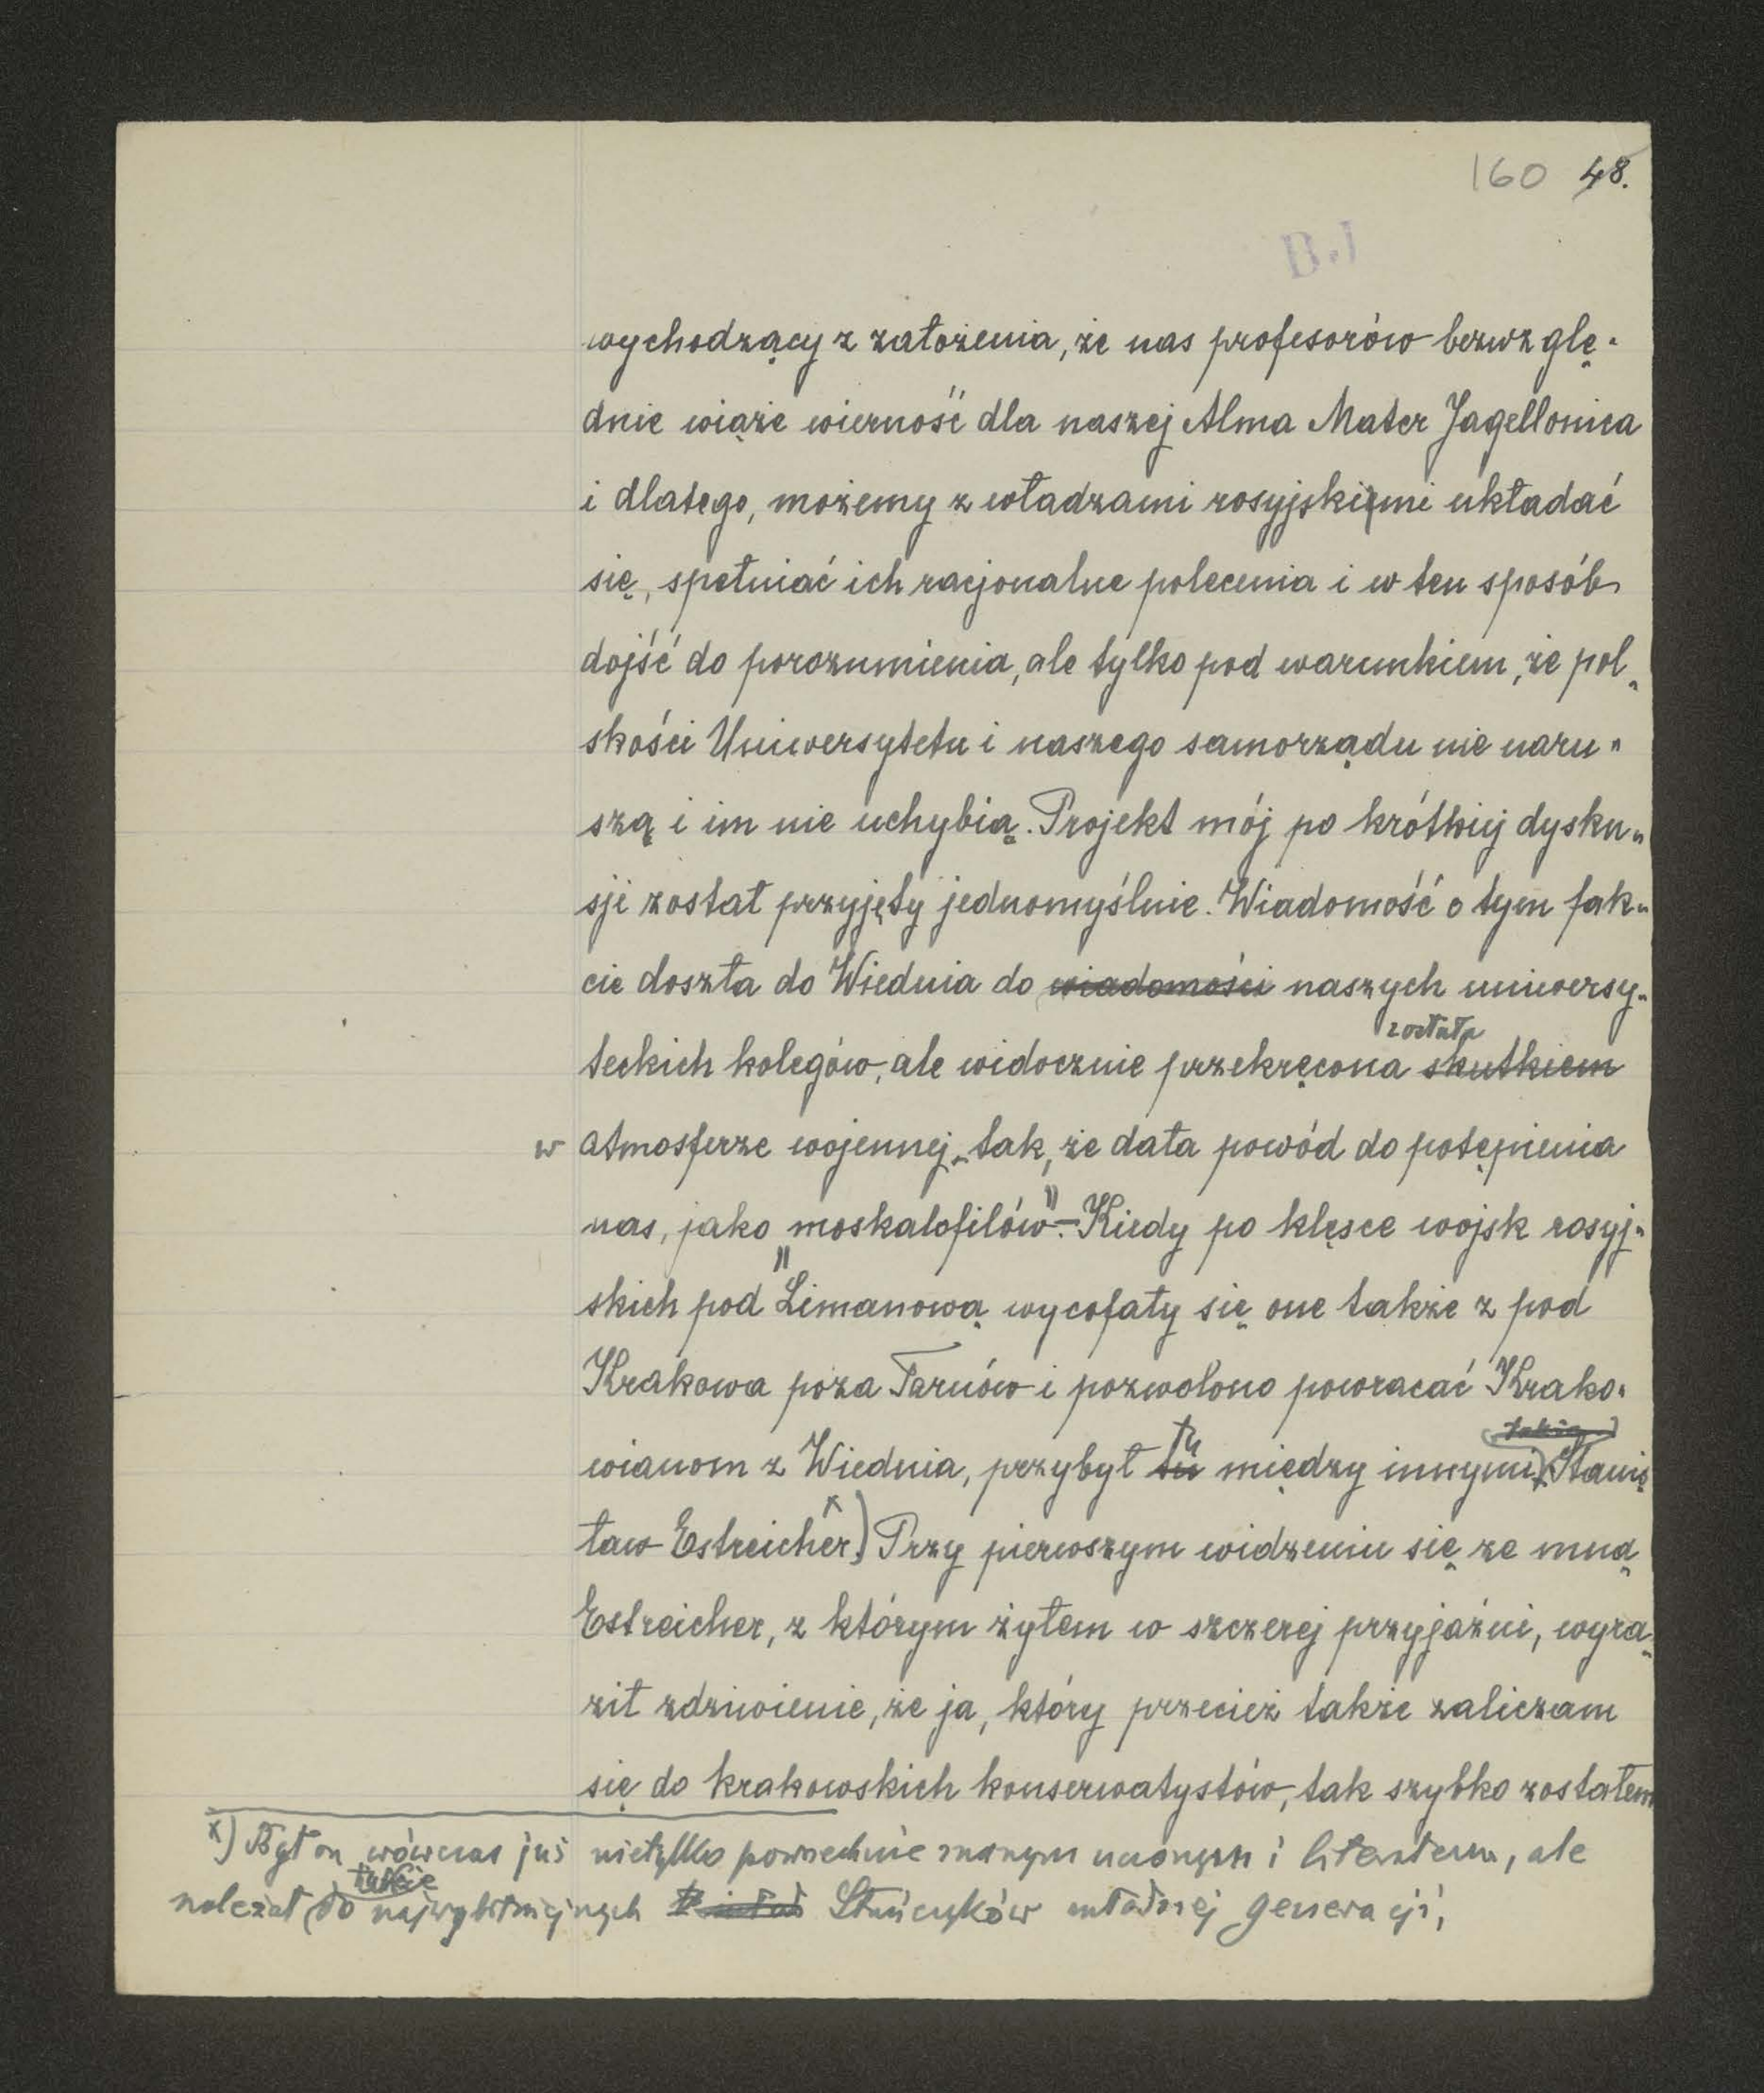 160 48.
B.J
wychodzący z założenia, że nas profesorów bezwzglę-
dnie wiąże wierność dla naszej Alma Mater Jagellonica
i dlatego, możemy z władzami rosyjskiemi układać
się, spełniać ich racjonalne polecenia i w ten sposób
dojść do porozumienia, ale tylko pod warunkiem, że pol-
skości Uniwersytetu i naszego samorządu nie naru-
szą i im nie uchybią. Projekt mój po krótkiej dysku-
sji został przyjęty jednomyślnie. Wiadomość o tym fak-
cie doszła do Wiednia do wiadomości naszych uniwersy-
została
teckich kolegów, ale widocznie przekręcona skutkiem
w atmosferze wojennej, tak, że dała powód do potępienia
nas, jako „moskalofilów". – Kiedy po klęsce wojsk rosyj-
skich pod Limanową wycofały się one także z pod
Krakowa poza Tarnów i pozwolono powracać Krako-
także
wianom z Wiednia, przybył tu tu między innymi Stanis
ław Estreicher x) Przy pierwszym widzeniu się ze mną
Estreicher, z którym żyłem w szczerej przyjaźni, wyra-
ził zdziwienie, że ja, który przecież także zaliczam
się do krakowskich konserwatystów, tak szybko zostałem
x) Był on wówczas już nietylko powszechnie znanym uczonym i literatem, ale
także
należał do najwybitniejszych Stańczyków młodszej generacji,